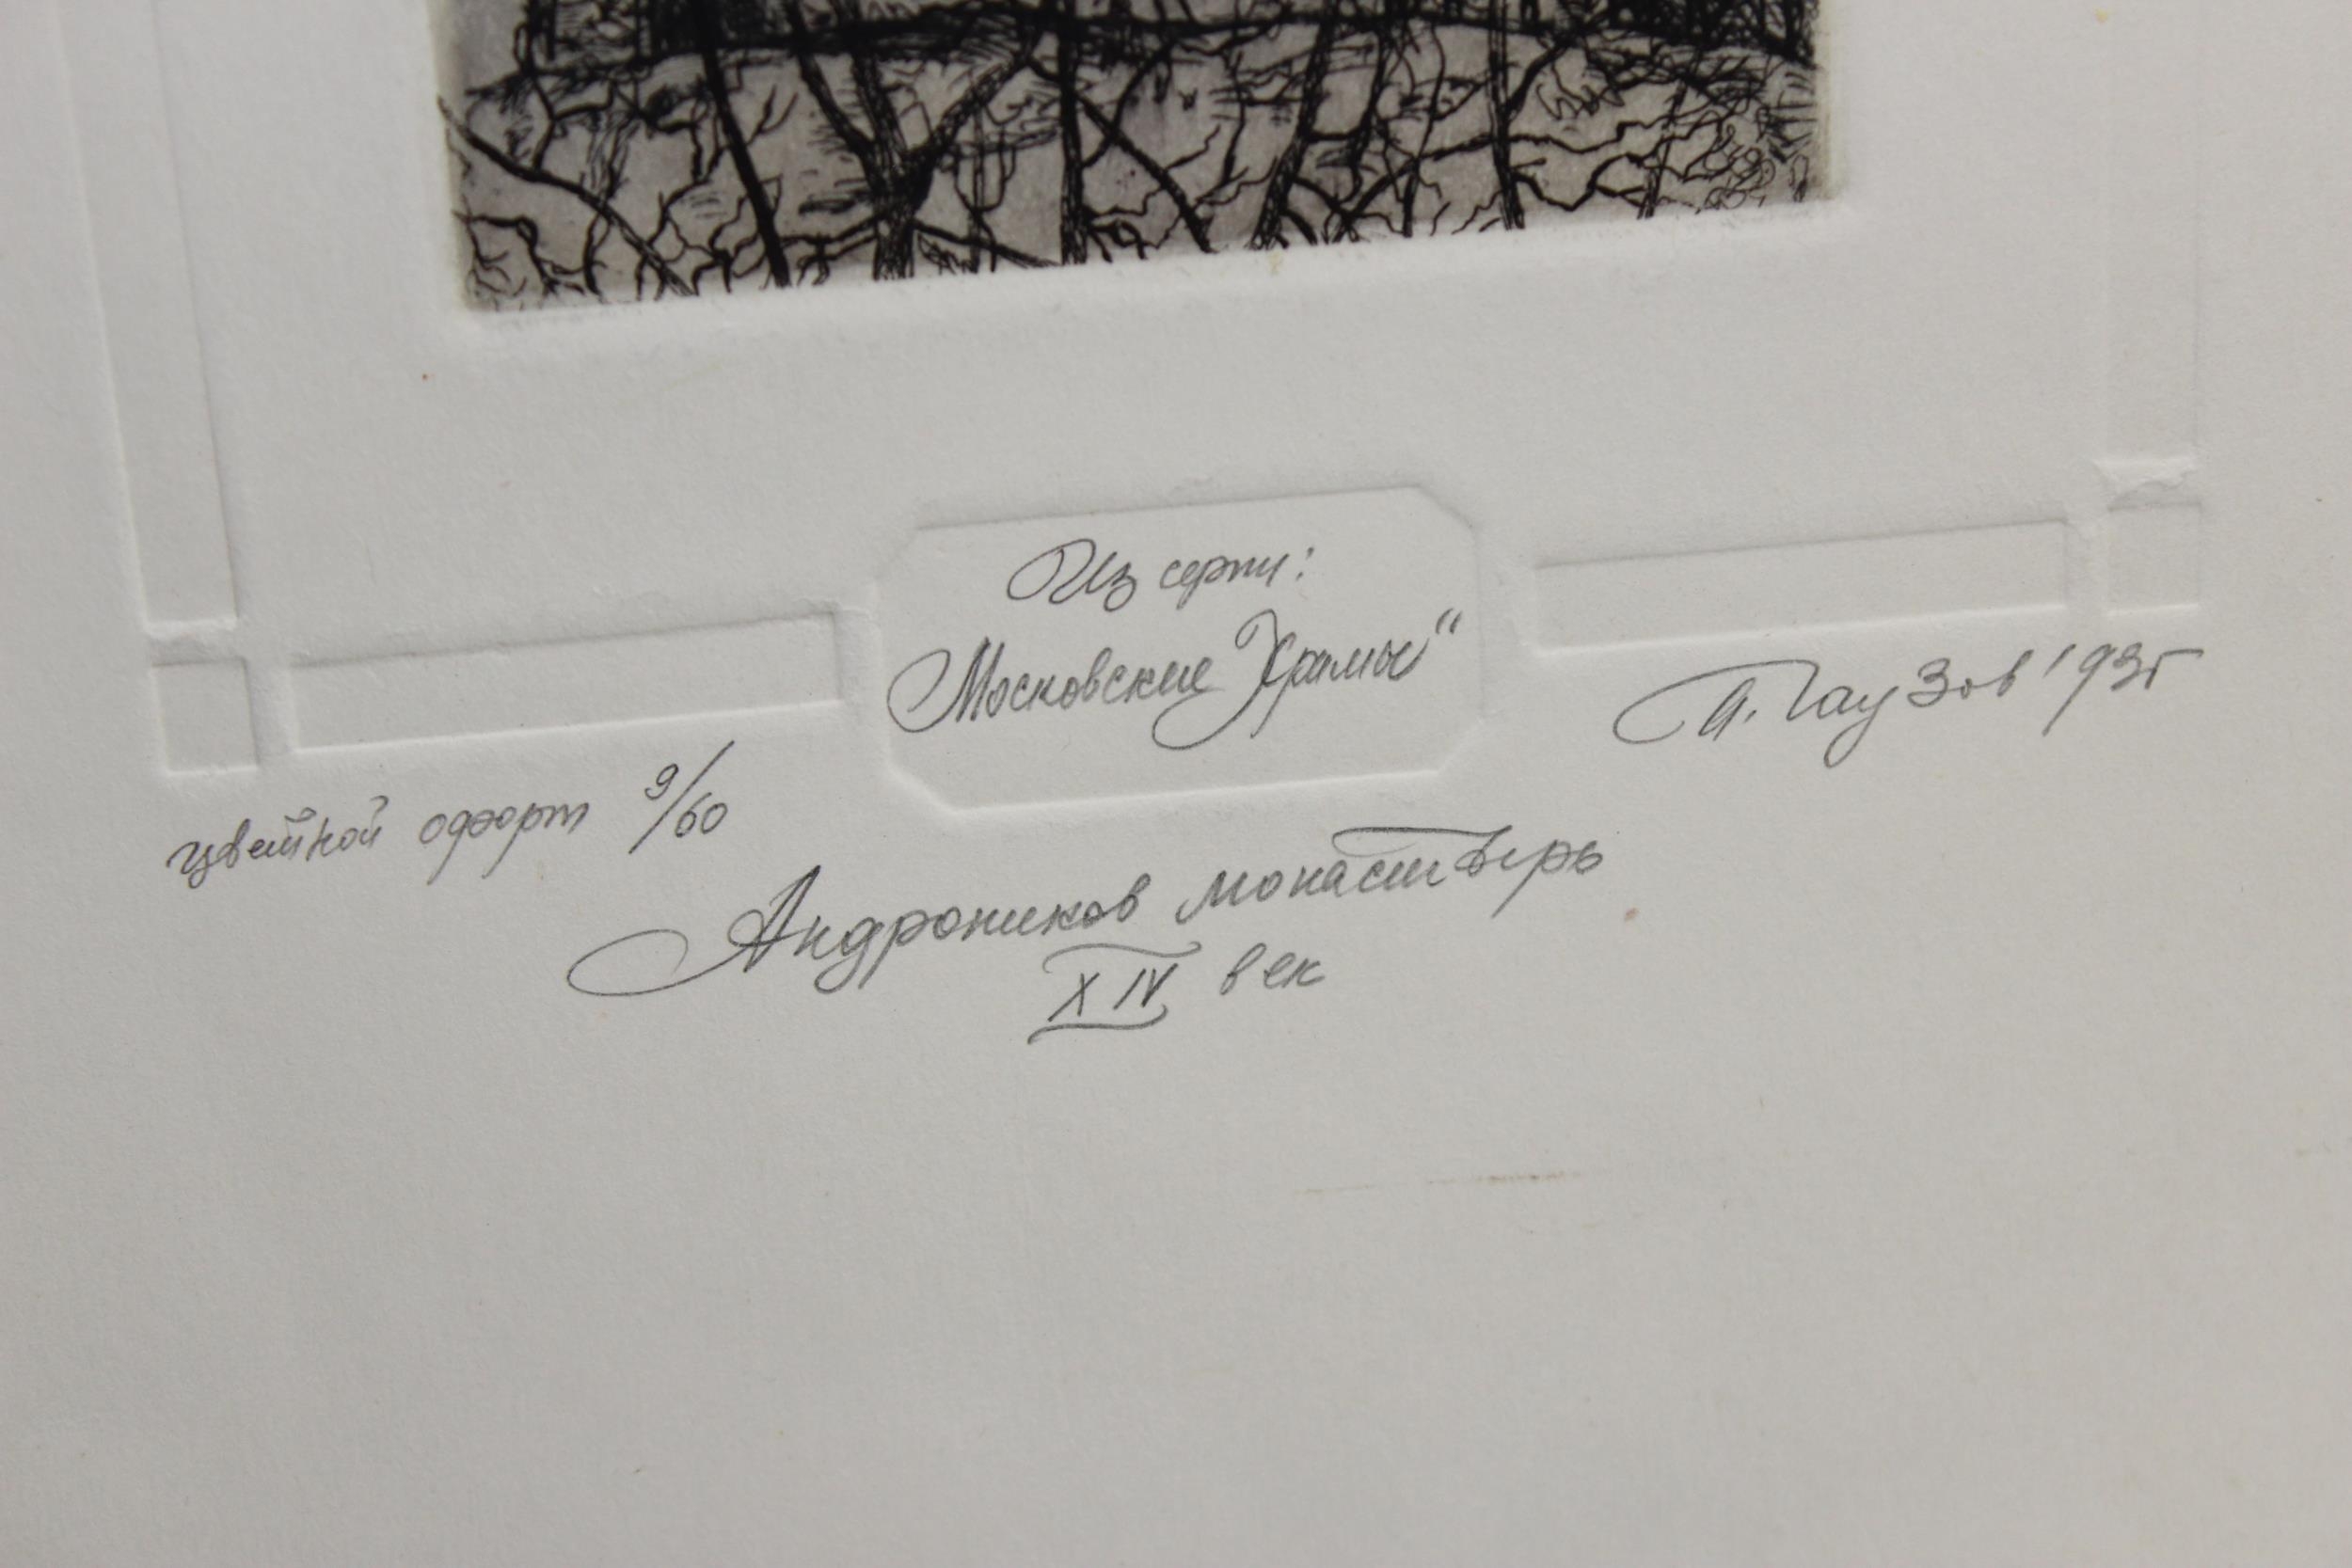 Из серии:
Московские Храмы"
А. Гаузов '93г
цветной офорт 9/60
Андроников монастырь
XIV век